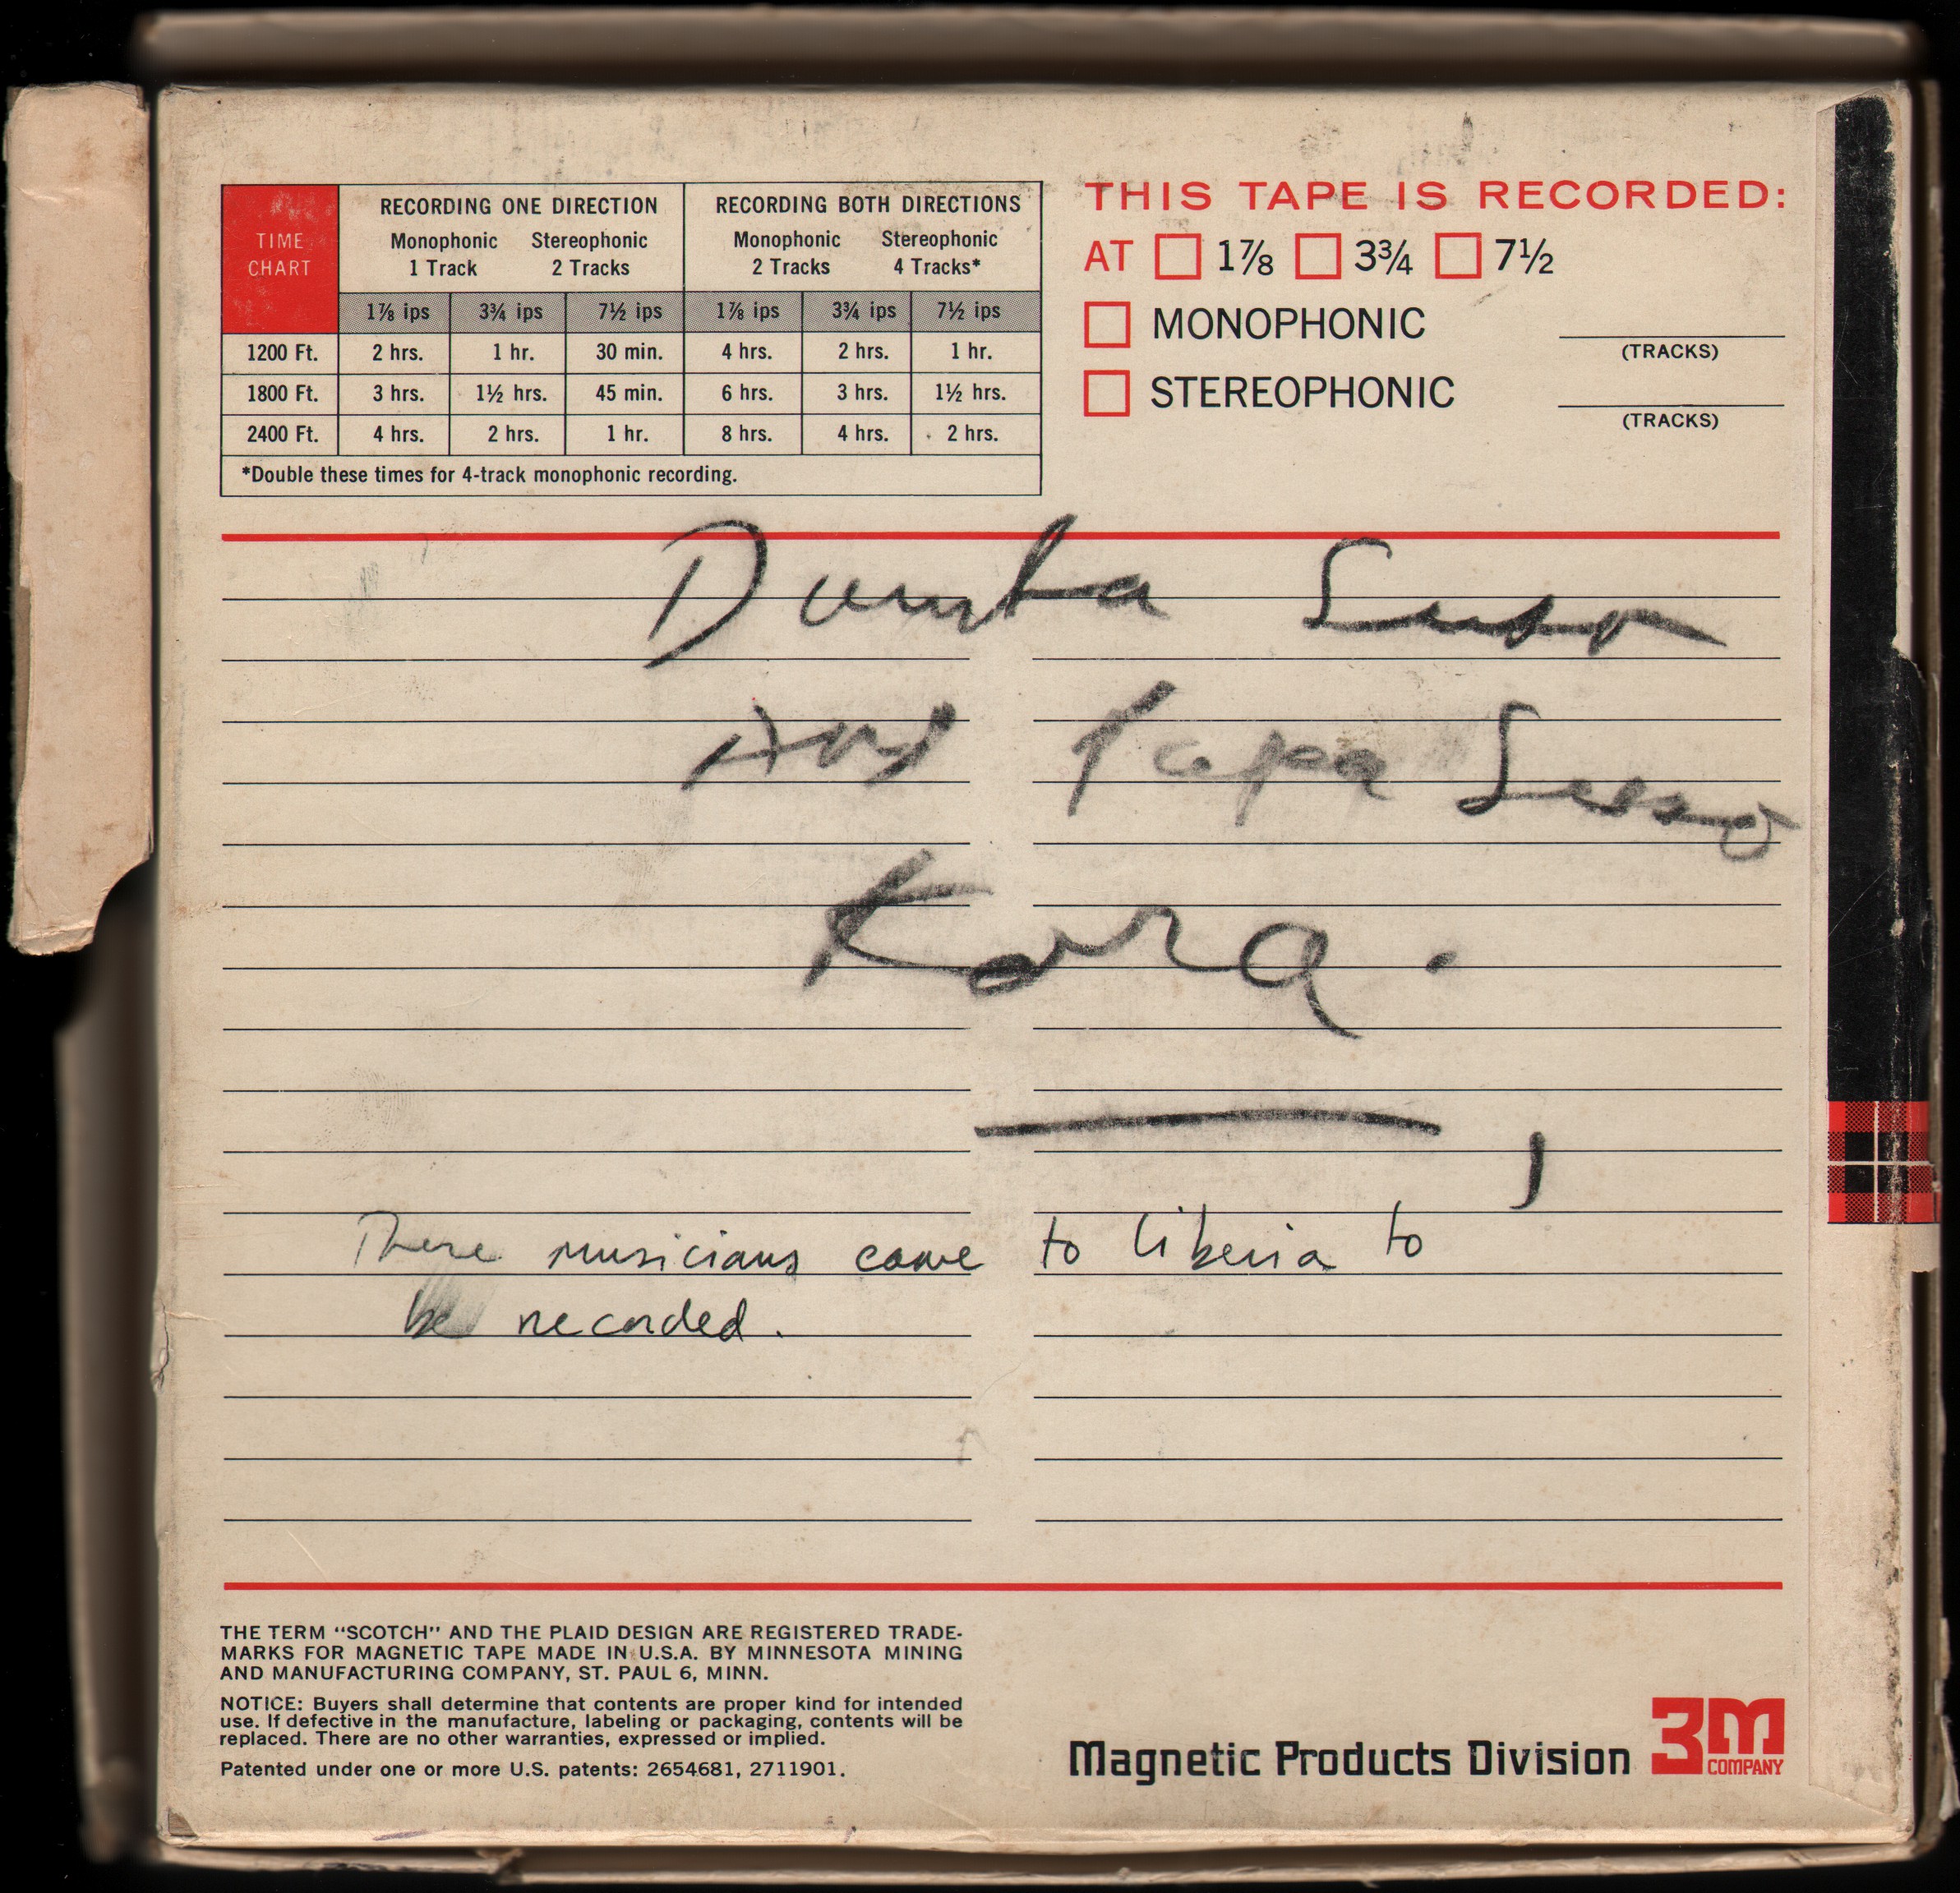 TIME CHART
RECORDING ONE DIRECTION RECORDING BOTH DIRECTIONS
Monophonic Stereophonic Monophonic Stereophonic
1 Track 2 Tracks 2 Tracks 4 Tracks*
1⅞ ips 3¾ ips 7½ ips 1⅞ ips 3¾ ips 7½ ips
1200 Ft. 2 hrs. 1 hr. 30 min. 4 hrs. 2 hrs. 1 hr.
1800 Ft. 3 hrs. 1½ hrs. 45 min. 6 hrs. 3 hrs. 1½ hrs.
2400 Ft. 4 hrs. 2 hrs. 1 hr. 8 hrs. 4 hrs. 2 hrs.
*Double these times for 4-track monophonic recording.
THIS TAPE IS RECORDED:
AT 1⅞ 3¾ 7½
MONOPHONIC
(TRACKS)
STEREOPHONIC
(TRACKS)
Dumba Suso
And Papa Suso
Kora.
These musicians came to liberia to
be recorded.
THE TERM "SCOTCH" AND THE PLAID DESIGN ARE REGISTERED TRADE-
MARKS FOR MAGNETIC TAPE MADE IN U.S.A. BY MINNESOTA MINING
AND MANUFACTURING COMPANY, ST. PAUL 6, MINN.
NOTICE: Buyers shall determine that contents are proper kind for intended
use. If defective in the manufacture, labeling or packaging, contents will be
replaced. There are no other warranties, expressed or implied.
Patented under one or more U.S. patents: 2654681, 2711901.
Magnetic Products Division
3M COMPANY